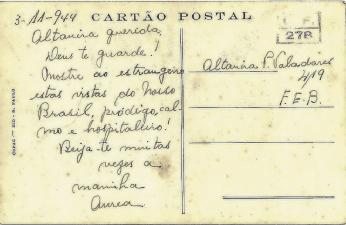 3-11-944
CARTÃO POSTAL
278
Altamira querida,
Deus te guarde!
Mostre ao estrangeiro
estas vistas do Nosso
Brasil, pródigo, cal-
mo e hospitaleiro!
Beija-te muitas
vezes a
maninha
Aurea
Altamira P. Valadares
F.E.B.